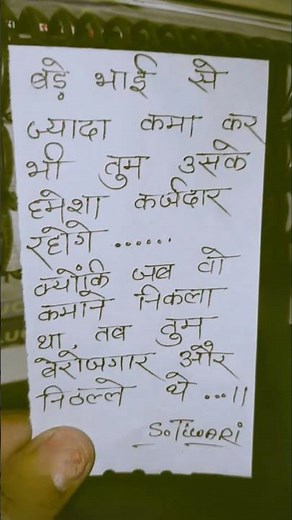 बड़े भाई से
ज्यादा कमा कर
भी तुम उसके
हमेशा कर्जदार
रहोगे ......
क्योंकि जब वो
कमाने निकला
था, तब तुम
बेरोजगार और
निठल्ले थे ...।।
S.TIWARI